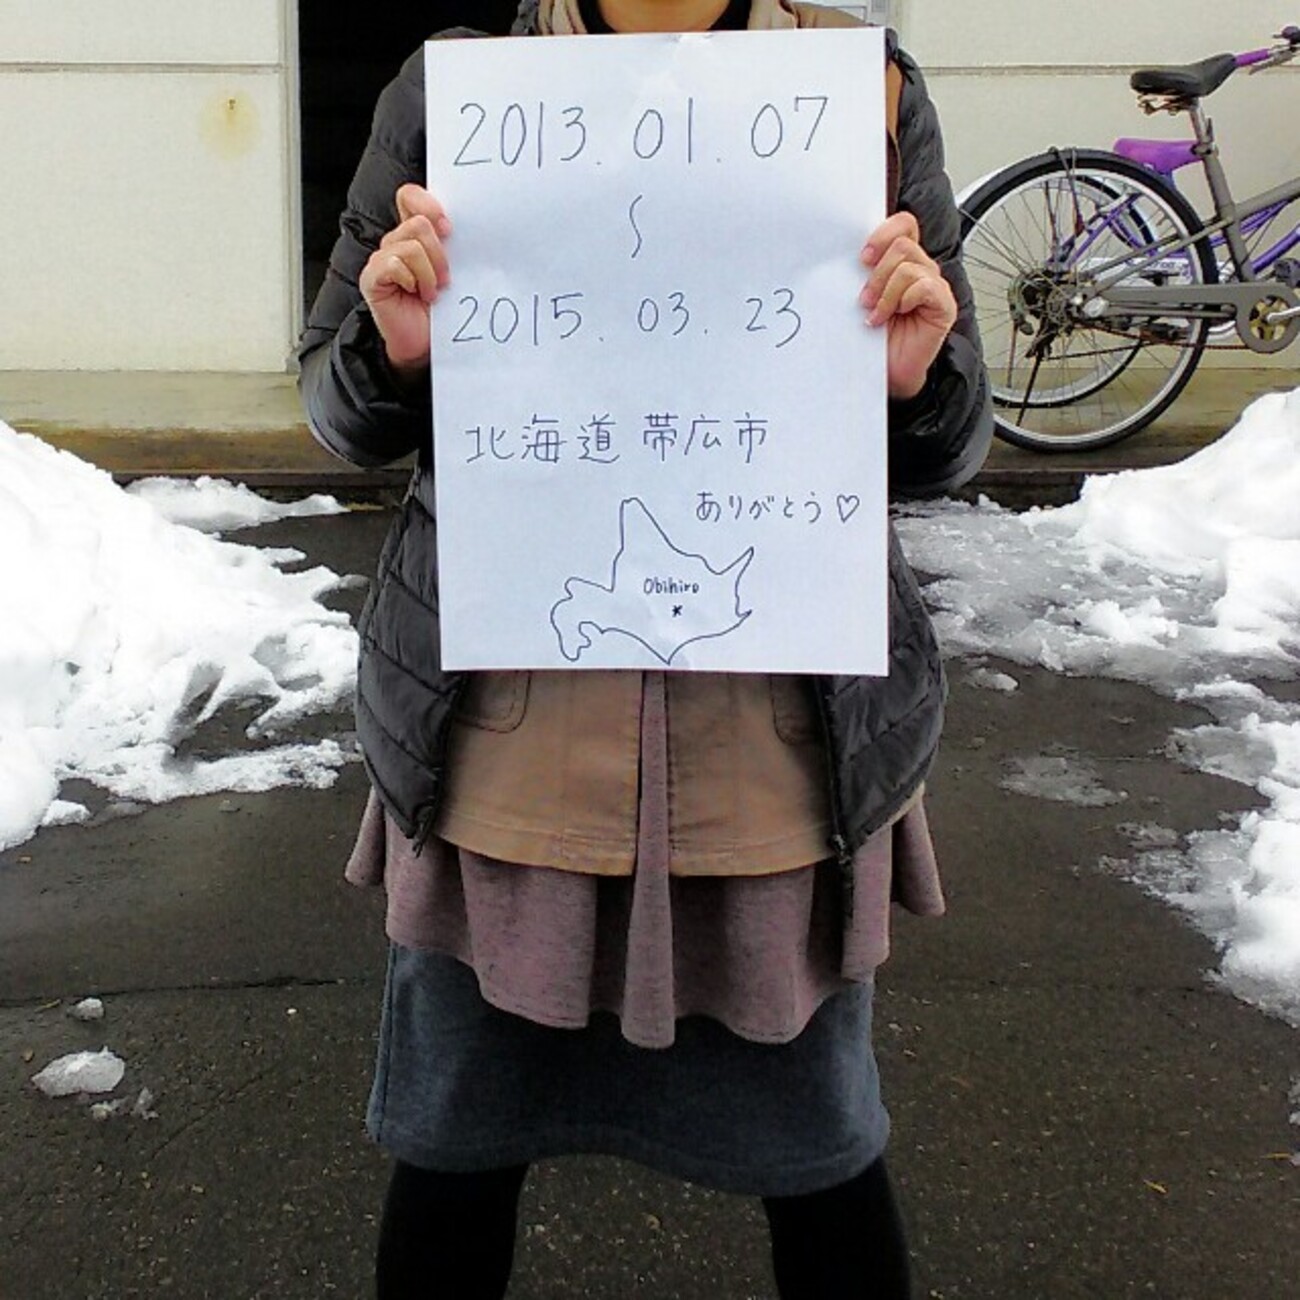 2013.01.07
〜
2015.03.23
北海道 帯広市
ありがとう♡
Obihiro
*